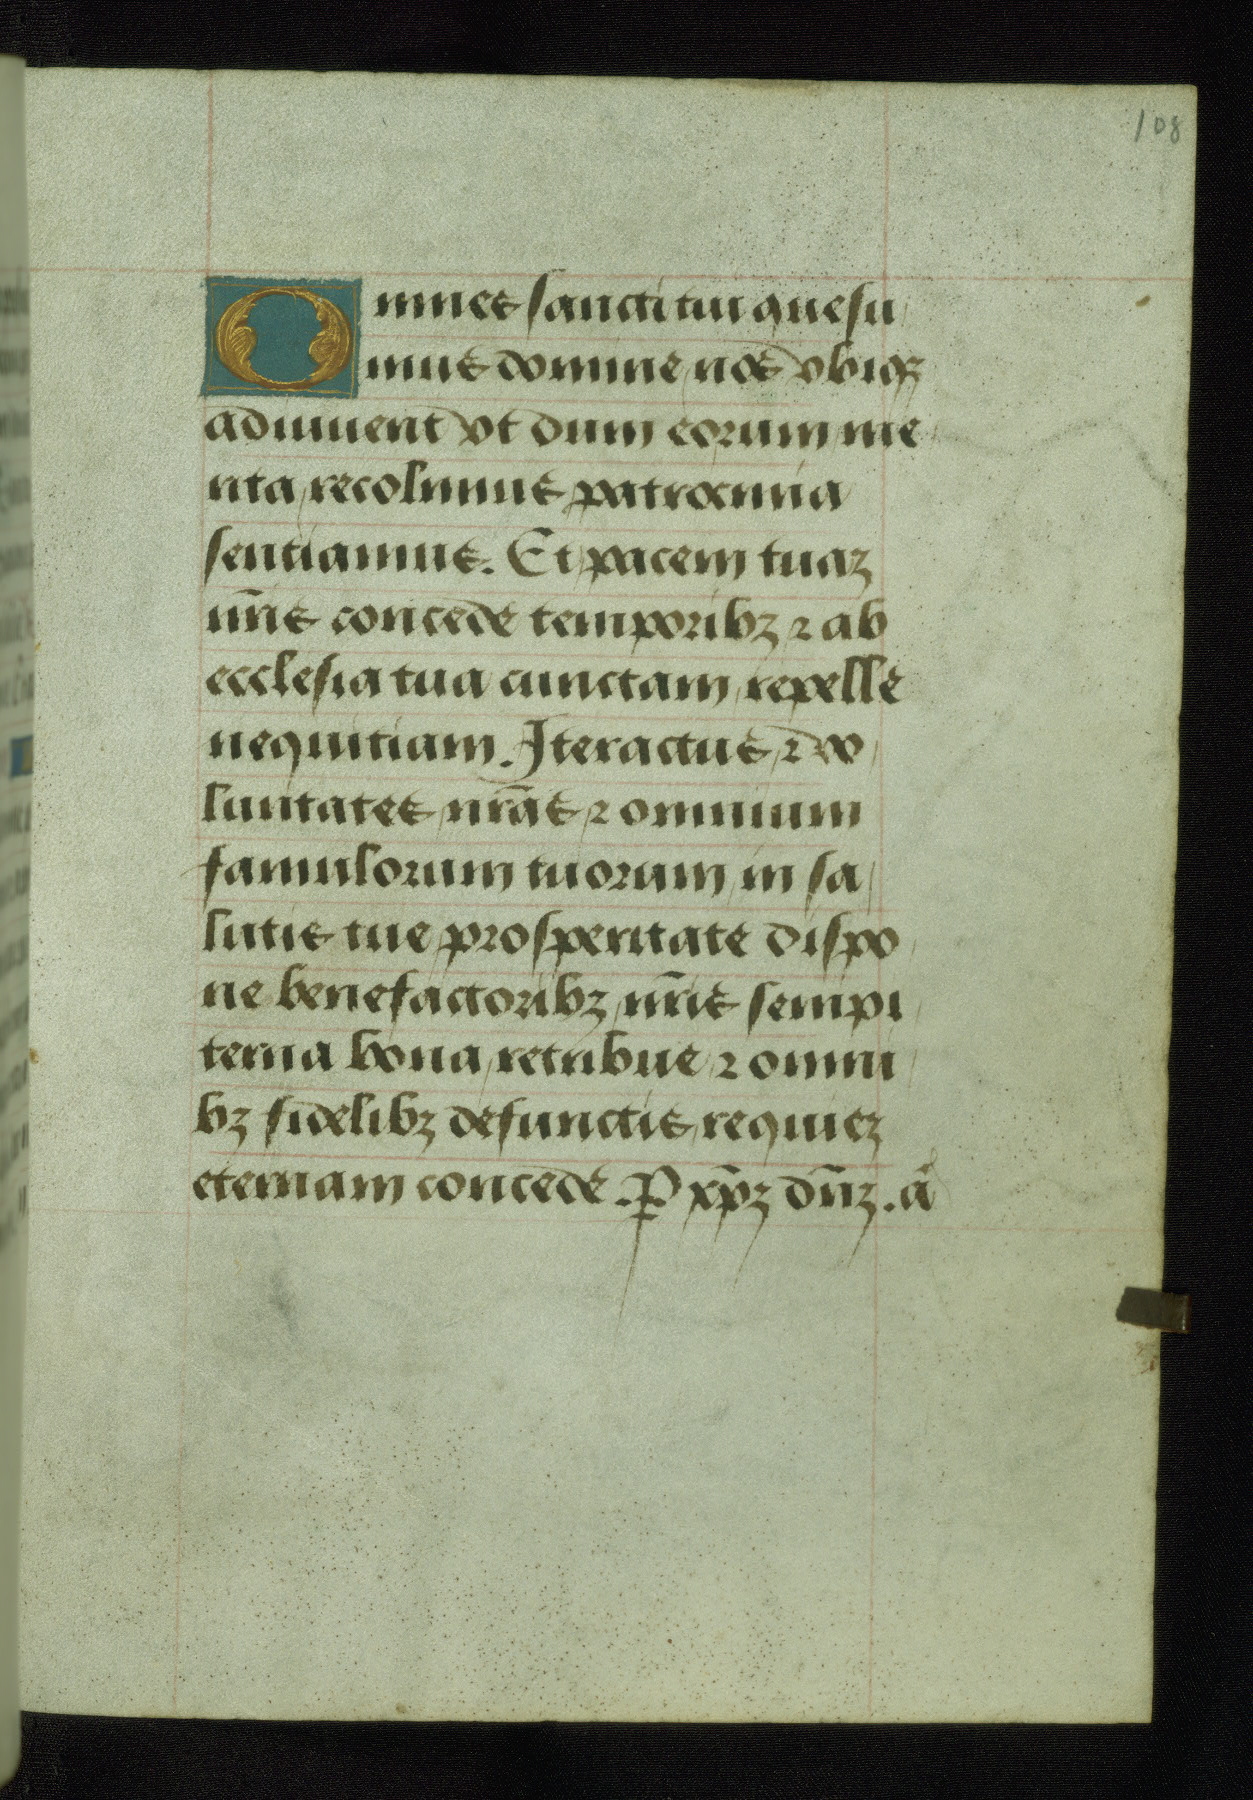 108
Omnes sancti tui quesu
mus domine nos vbiqz
adiuuent vt dum eorum me
rita recolimus patrocinia
sentiamus. Et pacem tuaz
nr̄is concede temporibz ⁊ ab
ecclesia tua cunctam repelle
nequitiam. Iter actus ⁊ vo
luntates nr̄as ⁊ omnium
famulorum tuorum in sa
lutis tue prosperitate dispo
ne benefactoribz nr̄is sempi
terna bona retribue ⁊ omni
bz fidelibz defunctis requiez
eternam concede. P xp̄z dn̄z. a